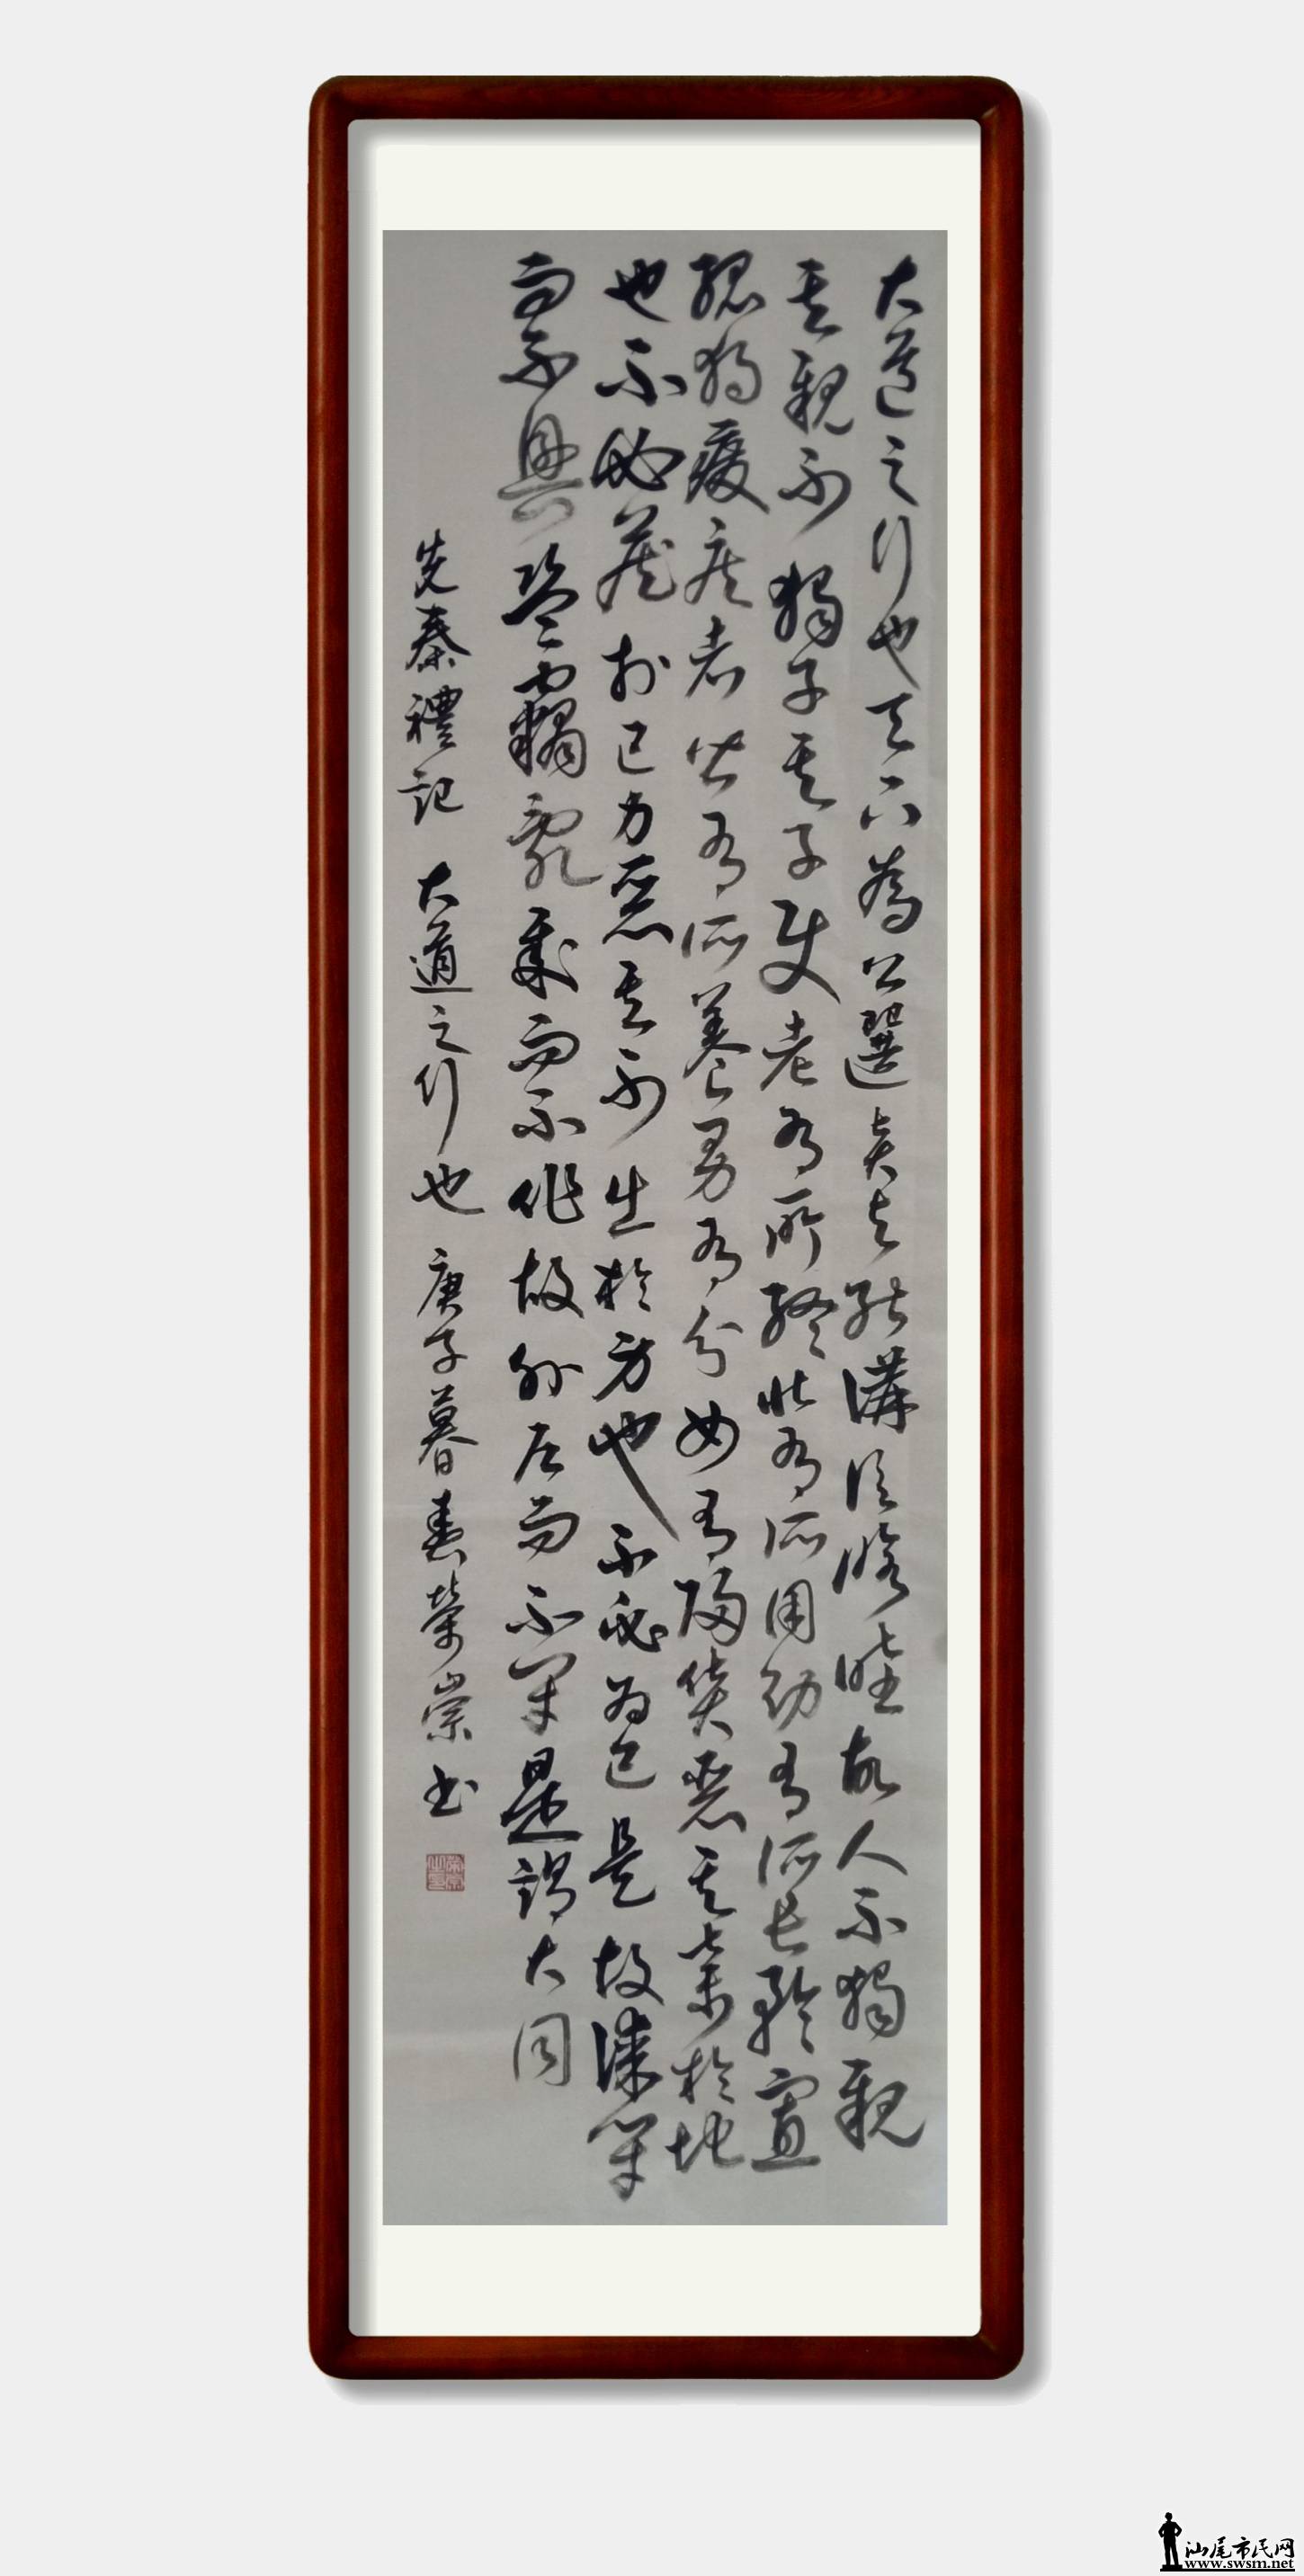 大道之行也天下為公選賢與能講信修睦故人不獨親
其親不獨子其子使老有所終壯有所用幼有所長矜寡
孤獨廢疾者皆有所養男有分女有歸貨惡其棄於地
也不必藏於己力惡其不出於身也不必為己是故謀閉
而不興盜竊亂賊而不作故外戶而不閉是謂大同
先秦禮記 大道之行也 庚子暮春榮崇书
汕尾市民网
www.swsm.net